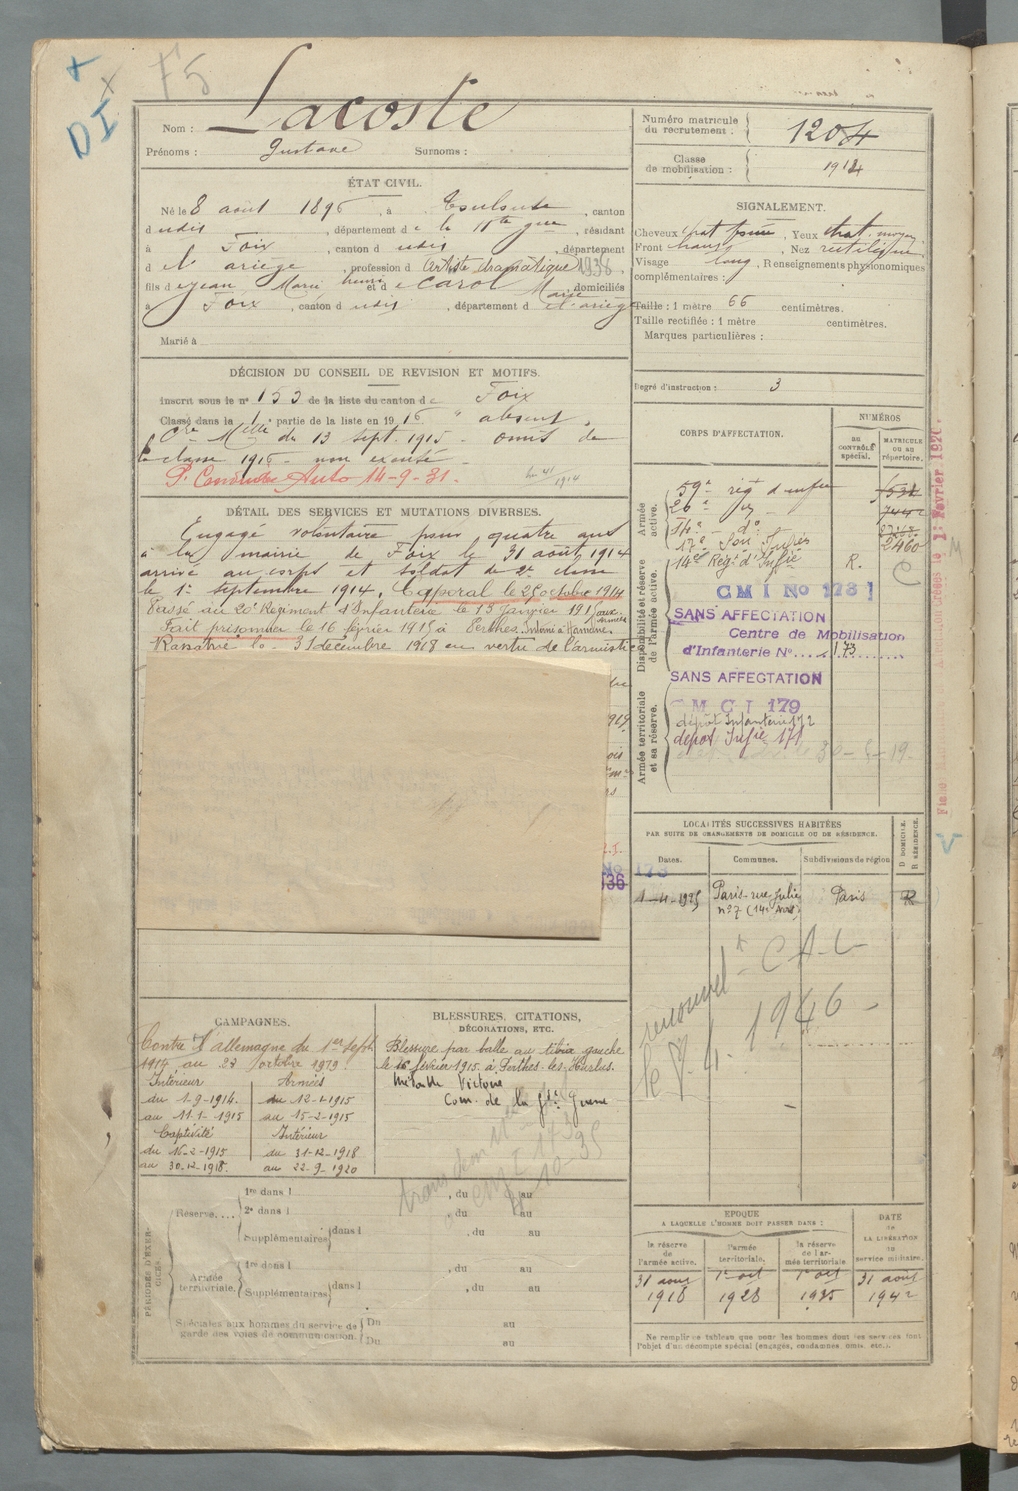 F5
DI
Nom : Lacoste
Prénoms : Gustave Surnoms :
Numéro matricule du recrutement : 1204
Classe de mobilisation : 1914
ÉTAT CIVIL.
Né le 8 août 1896, à Toulouse, canton
d udit, département d e la Hte Gne, résidant
à Foix, canton d udit, département
d e l'ariège, profession d Artiste dramatique 1938.
fils d e Jean Marie henri et d e Carol Marie, domiciliés
à Foix, canton d udit, département d e l'ariège
Marié à
SIGNALEMENT.
Cheveux chat foncé, Yeux chat. moyen
Front haut, Nez rectiligne
Visage long, Renseignements physionomiques
complémentaires :
Taille : 1 mètre 66 centimètres.
Taille rectifiée : 1 mètre centimètres.
Marques particulières :
Degré d'instruction : 3
DÉCISION DU CONSEIL DE REVISION ET MOTIFS.
Inscrit sous le n° 153 de la liste du canton de Foix
Classé dans la 1 partie de la liste en 1916 " absent.
Cre Mlle du 13 sept. 1915 - omis de
la classe 1916 - non excusé -
P. Conduire Auto 14-9-31.
DÉTAIL DES SERVICES ET MUTATIONS DIVERSES.
Engagé volontaire pour quatre ans
à la mairie de Foix le 31 août 1914
arrivé au corps et soldat de 2e classe
le 1er septembre 1914. Caporal le 25 octobre 1914
Passé au 20e Régiment d'Infanterie le 13 janvier 1915 (aux armées
Fait prisonnier le 16 février 1915 à Perthes. Interné à Hameln.
Rapatrié le 31 décembre 1918 en vertu de l'armistice
CORPS D'AFFECTATION.
NUMÉROS
AU CONTRÔLE spécial.
MATRICULE OU AU répertoire.
Armée active.
59e rég d'infie
20e
14e - do
17e Son Infres 2460
Disponibilité et réserve de l'armée active.
14e Régt d'Infie R.
C M I No 173
SANS AFFECTATION
Centre de Mobilisation
d'Infanterie No 173
SANS AFFECTATION
Armée territoriale et sa réserve.
C M C I 179
dépôt Infanterie 172
dépot Infie 171
No 173
936
LOCALITÉS SUCCESSIVES HABITÉES
PAR SUITE DE CHANGEMENTS DE DOMICILE OU DE RÉSIDENCE.
D DOMICILE. R RÉSIDENCE.
Dates. Communes. Subdivisions de région.
1-4-1925 Paris - rue Julie Paris R
n° 7 (14e Arrt)
renouvel t C A L
le 8.4.1946 -
CAMPAGNES.
Contre l'allemagne du 1er Sept
1914 au 23 octobre 1919.
Intérieur Armées
du 1-9-1914. du 12-1-1915
au 11.1-1915 au 15-2-1915
Captivité Intérieur
du 16-2-1915 du 31-12-1918
au 30-12-1918. au 22-9-1920
BLESSURES, CITATIONS,
DÉCORATIONS, ETC.
Blessure par balle au tibia gauche
le 16 février 1915 à Perthes-les-Hurlus.
Médaille Victoire
Com. de la Gde Guerre
PÉRIODES D'EXERCICES.
Réserve....
1re dans l , du au
2e dans l , du au
Supplémentaires dans l , du au
Armée territoriale.
1re dans l , du au
Supplémentaires dans l , du au
Spéciales aux hommes du service de Du au
garde des voies de communication. Du au
EPOQUE
A LAQUELLE L'HOMME DOIT PASSER DANS :
DATE de LA LIBÉRATION du service militaire.
la réserve de l'armée active. l'armée territoriale. la réserve de l'armée territoriale
31 août 1918 1er oct 1928 1er oct 1935 31 août 1942
Ne remplir ce tableau que pour les hommes dont les services font
l'objet d'un décompte spécial (engagés, condamnés, omis, etc.).